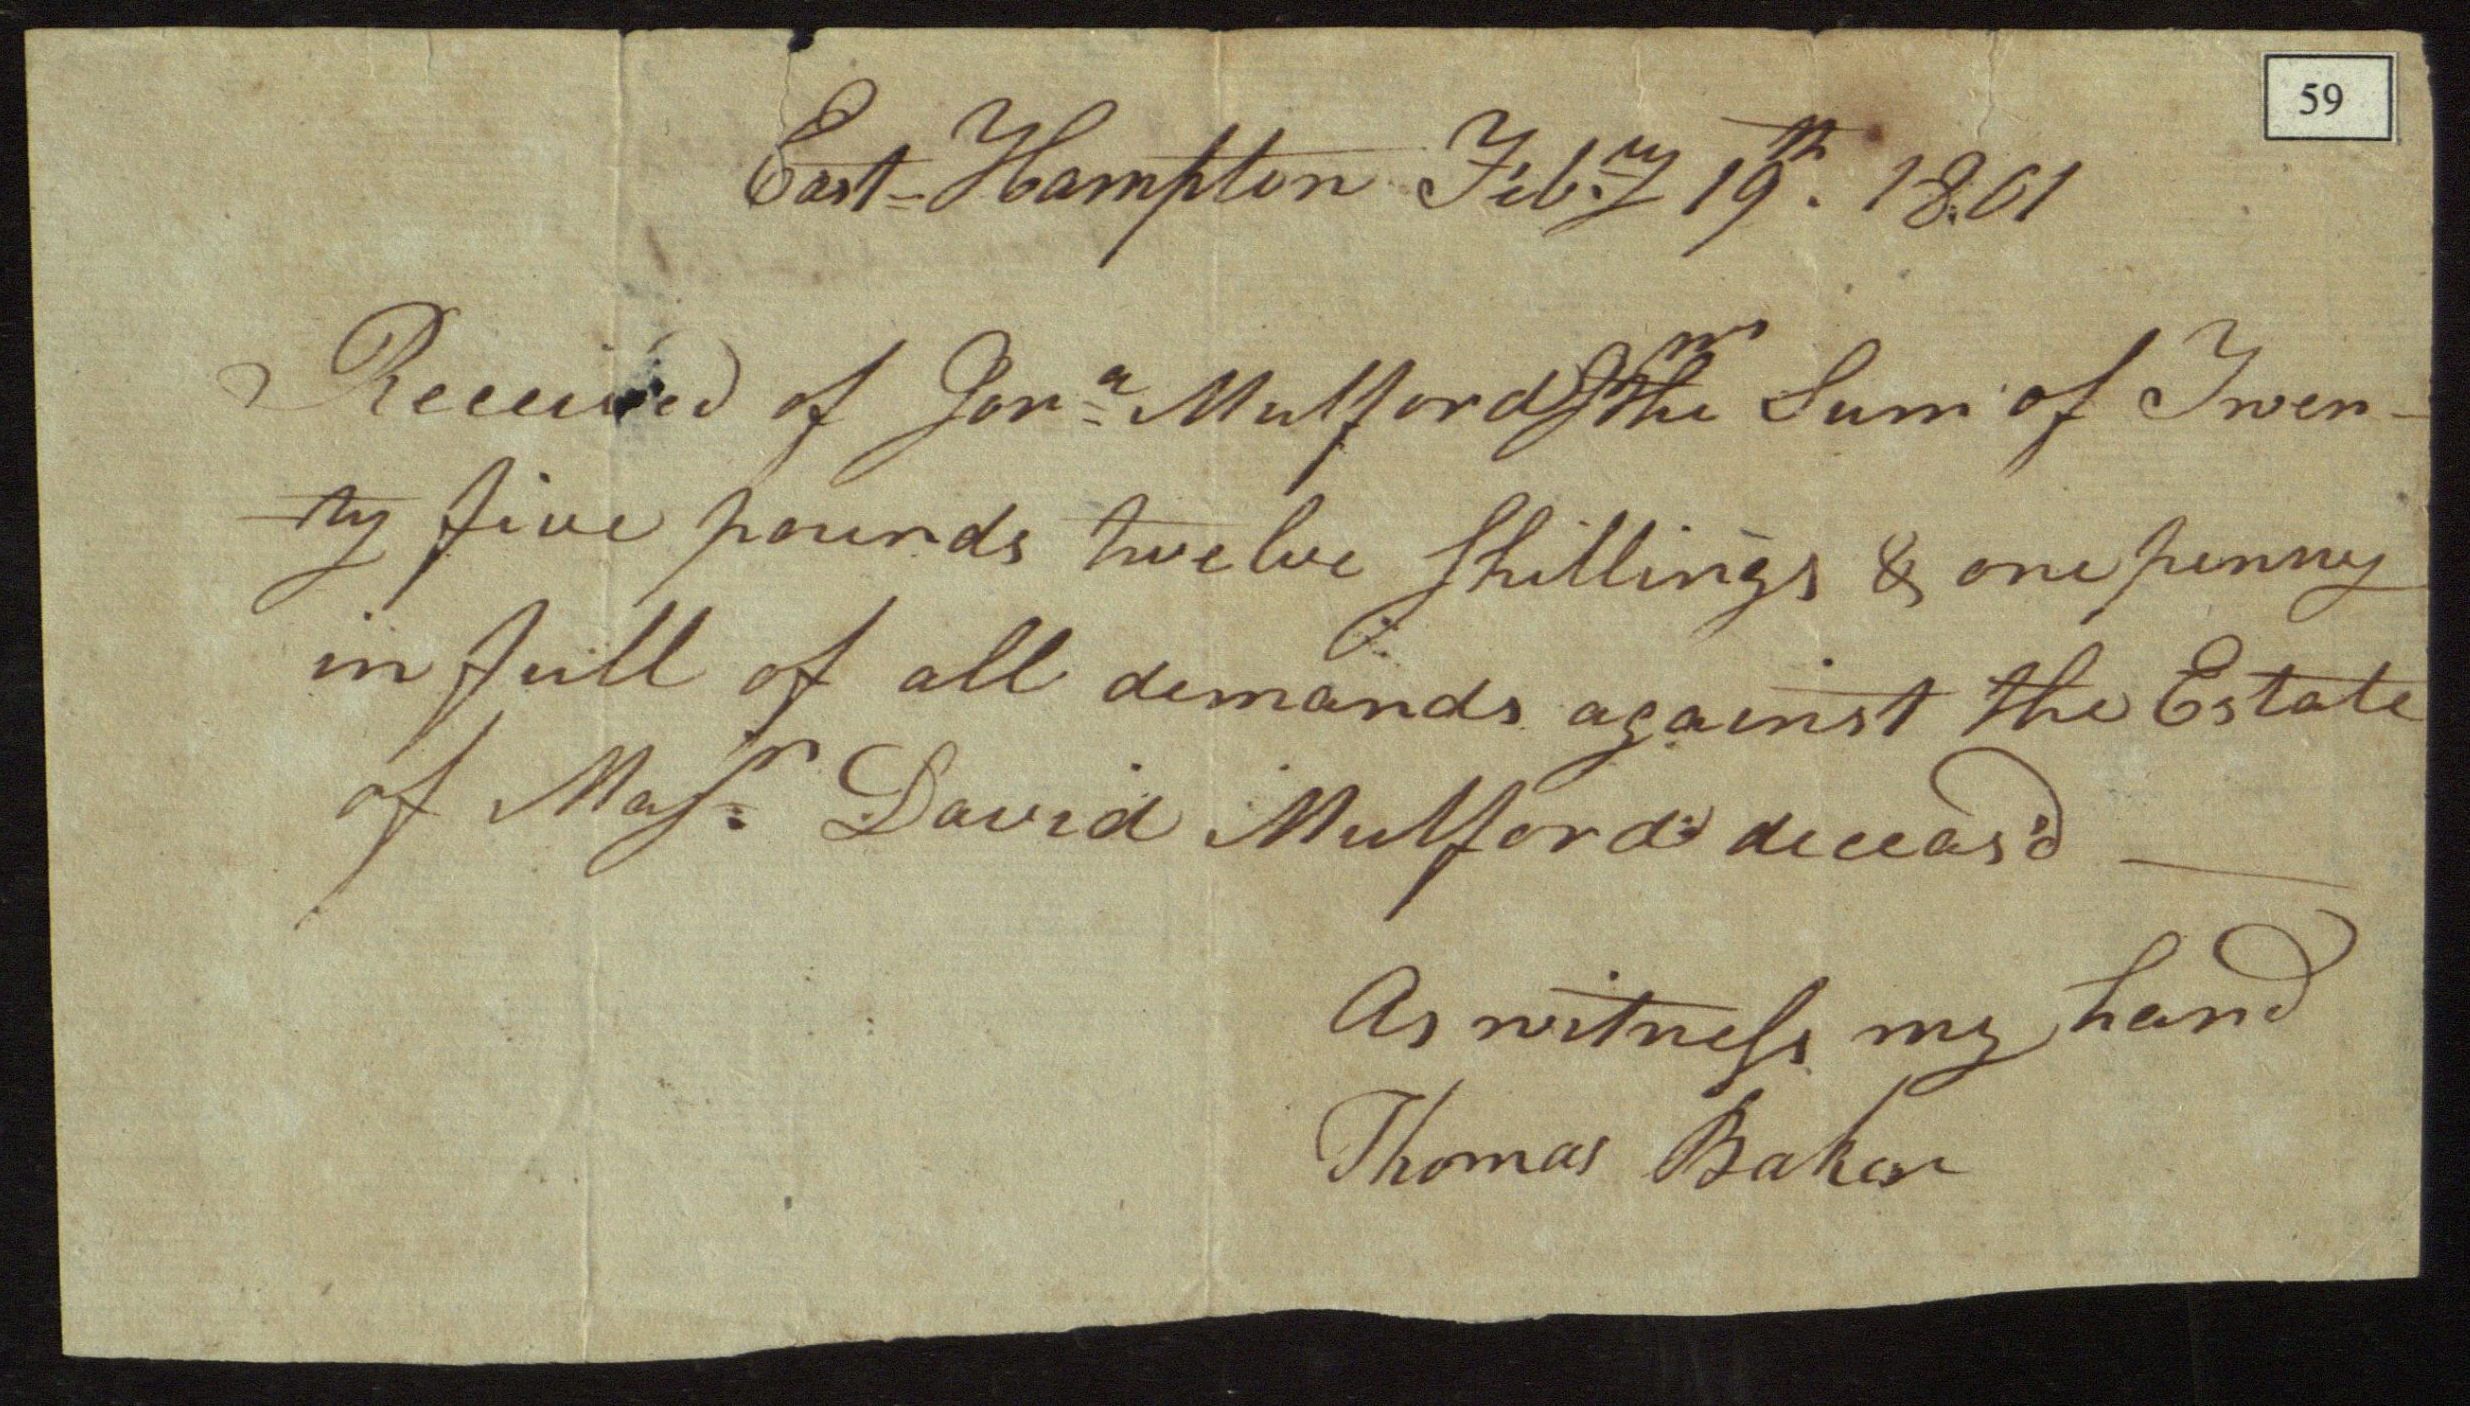 59
East-Hampton Feb.ry 19th. 1801
Received of Jona Mulford Jnr the Sum of Twen-
ty five pounds twelve shillings & one penny
in full of all demands against the Estate
of Majr. David Mulford deceas'd
As witness my hand
Thomas Baker